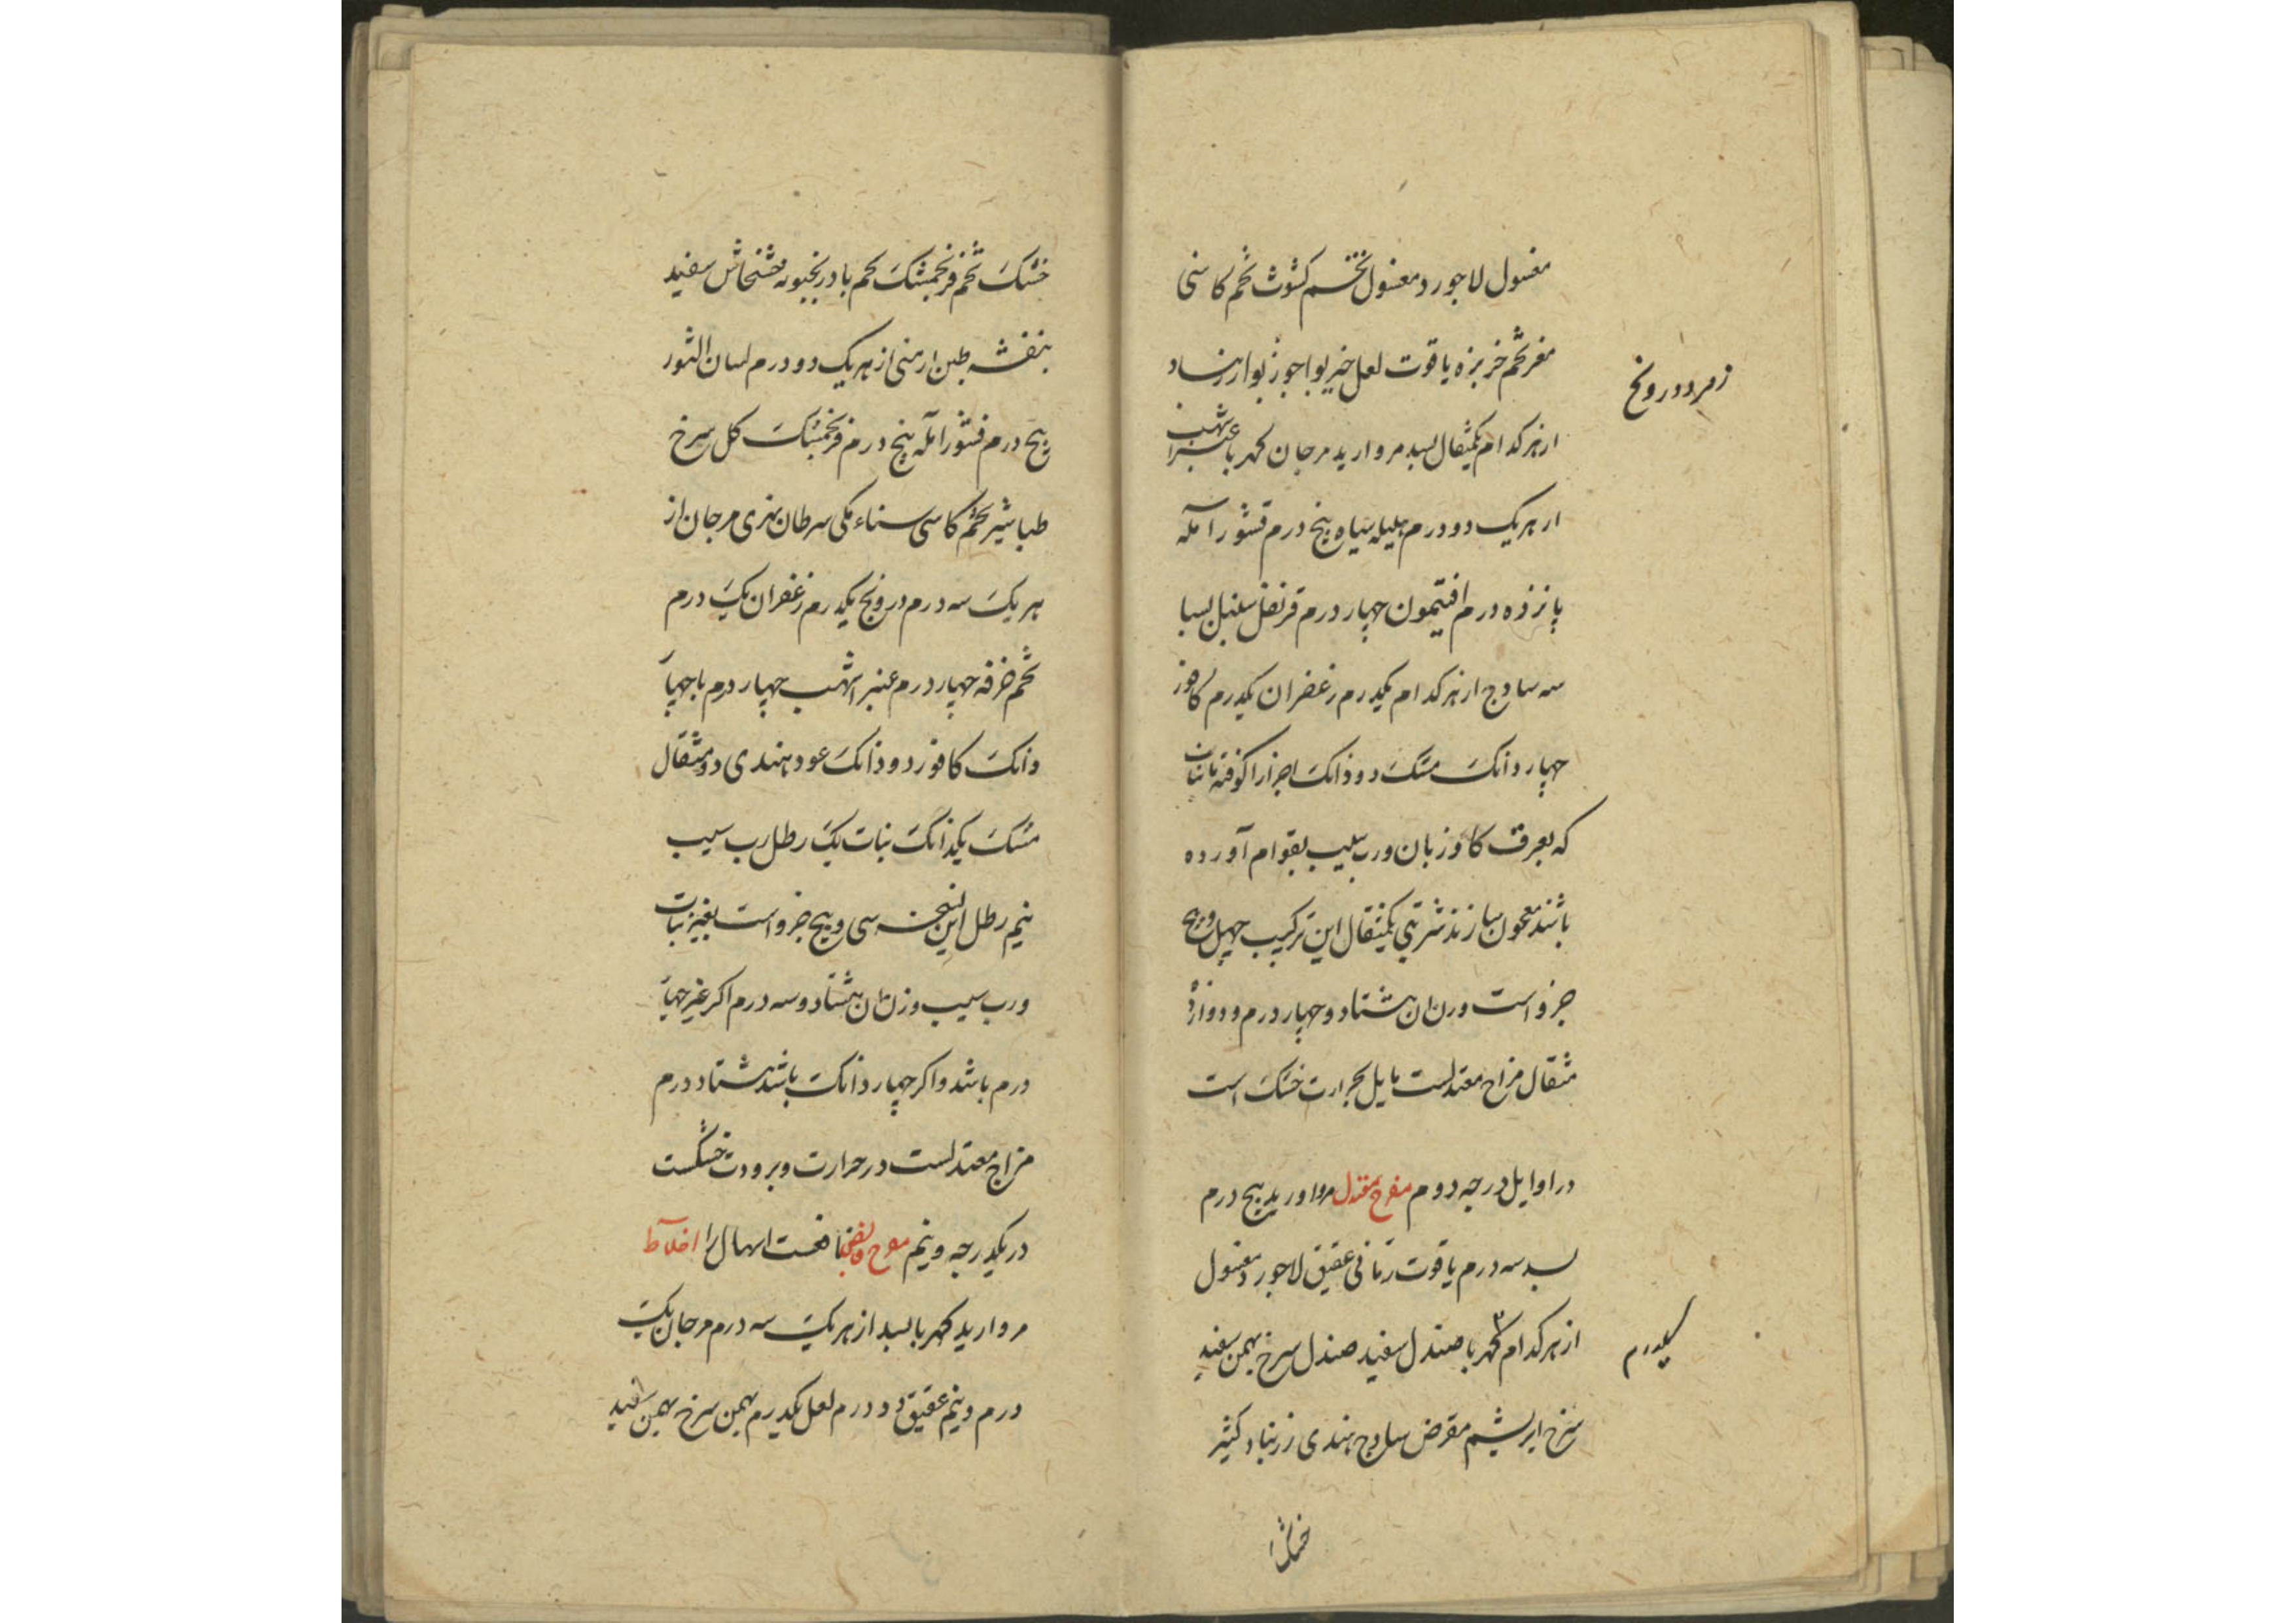 مغسول لاجورد مغسول تخم کشوث تخم کاسنی
مغز تخم خربزه یاقوت لعل خیربوا جوزبوا زرنباد
زمرد درونج
از هر کدام یکمثقال بسد مروارید مرجان کهربا عنبر اشهب
از هر یک دو درم هلیله سیاه پنج درم قشور آمله
پانزده درم افتیمون چهار درم قرنفل سنبل بسبا
سه سادج از هر کدام یکدرم زعفران یکدرم کافور
چهار دانک مشک دو دانک اجزا را کوفته با نبات
که بعرق کاوزبان و رب سیب بقوام آورده
باشند معجون سازند شربتی یکمثقال این ترکیب چهل و پنج
جزو است وزن ان هشتاد و چهار درم و دوازده
مثقال مزاج معتدلست مایل بحرارت خشک است
در اوایل درجه دوم مفرح معتدل مروارید پنج درم
بسد سه درم یاقوت رمانی عقیق لاجورد مغسول
از هر کدام ۳ کهربا صندل سفید صندل سرخ بهمن سفید
یکدرم
سرخ ابریشم مقرض سادج هندی زرنباد کشنیز
خشک
خشک تخم فرنجمشک تخم بادرنجبویه خشخاش سفید
بنفشه طین ارمنی از هر یک دو درم لسان الثور
پنج درم قشور آمله پنج درم فرنجمشک کل سرخ
طباشیر تخم کاسنی سناء مکی سرطان نهری مرجان از
هر یک سه درم درونج یکدرم زعفران یک درم
تخم خرفه چهار درم عنبر اشهب چهار درم یا چهار
دانک کافور دو دانک عود هندی دو مثقال
مشک یکدانک نبات یک رطل رب سیب
نیم رطل این نسخه سی و پنج جزو است بغیر نبات
و رب سیب وزن ان هشتاد و سه درم اکر عنبر چهار
درم باشد و اکر چهار دانک باشد هشتاد درم
مزاج معتدلست در حرارت و برودت خشکست
در یکدرجه و نیم مفرح قابض نافعست اسهال را اخلاط
مروارید کهربا بسد از هر یک سه درم مرجان یک
درم و نیم عقیق دو درم لعل یکدرم بهمن سرخ بهمن سفید